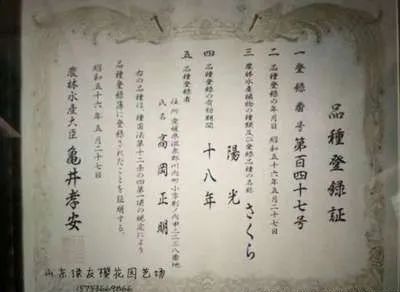 品種登録証
一 登録番号 第百四十七号
二 品種登録の年月日 昭和五十六年五月二十七日
三 農林水産植物の種類及び登録品種の名称 さくら
陽光
四 品種登録の有効期間 十八年
五 品種登録者
住所 愛媛県温泉郡川内町
氏名 高岡正明
右の品種は、種苗法第十二条の四第一項の規定により
品種登録簿に登録されたことを証明する。
昭和五十六年五月二十七日
農林水産大臣 亀井孝安
山东绿友樱花园艺场